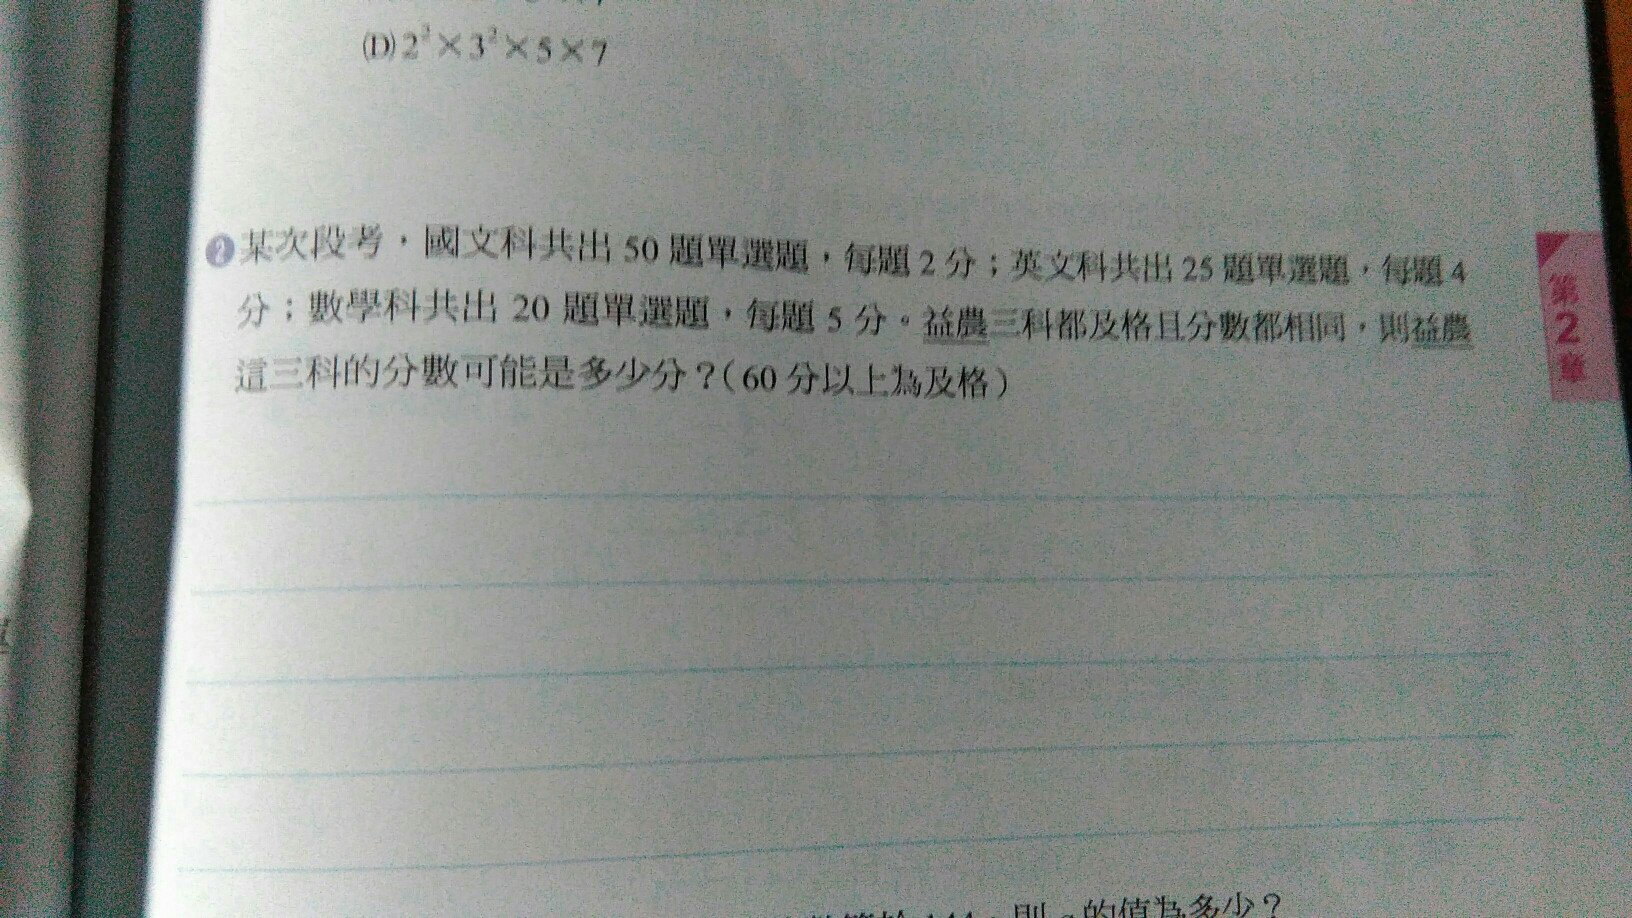 (D) 2²×3²×5×7
❷某次段考，國文科共出 50 題單選題，每題 2 分；英文科共出 25 題單選題，每題 4
分；數學科共出 20 題單選題，每題 5 分。益農三科都及格且分數都相同，則益農
這三科的分數可能是多少分？(60 分以上為及格)
第
2
章
則 的值為多少？